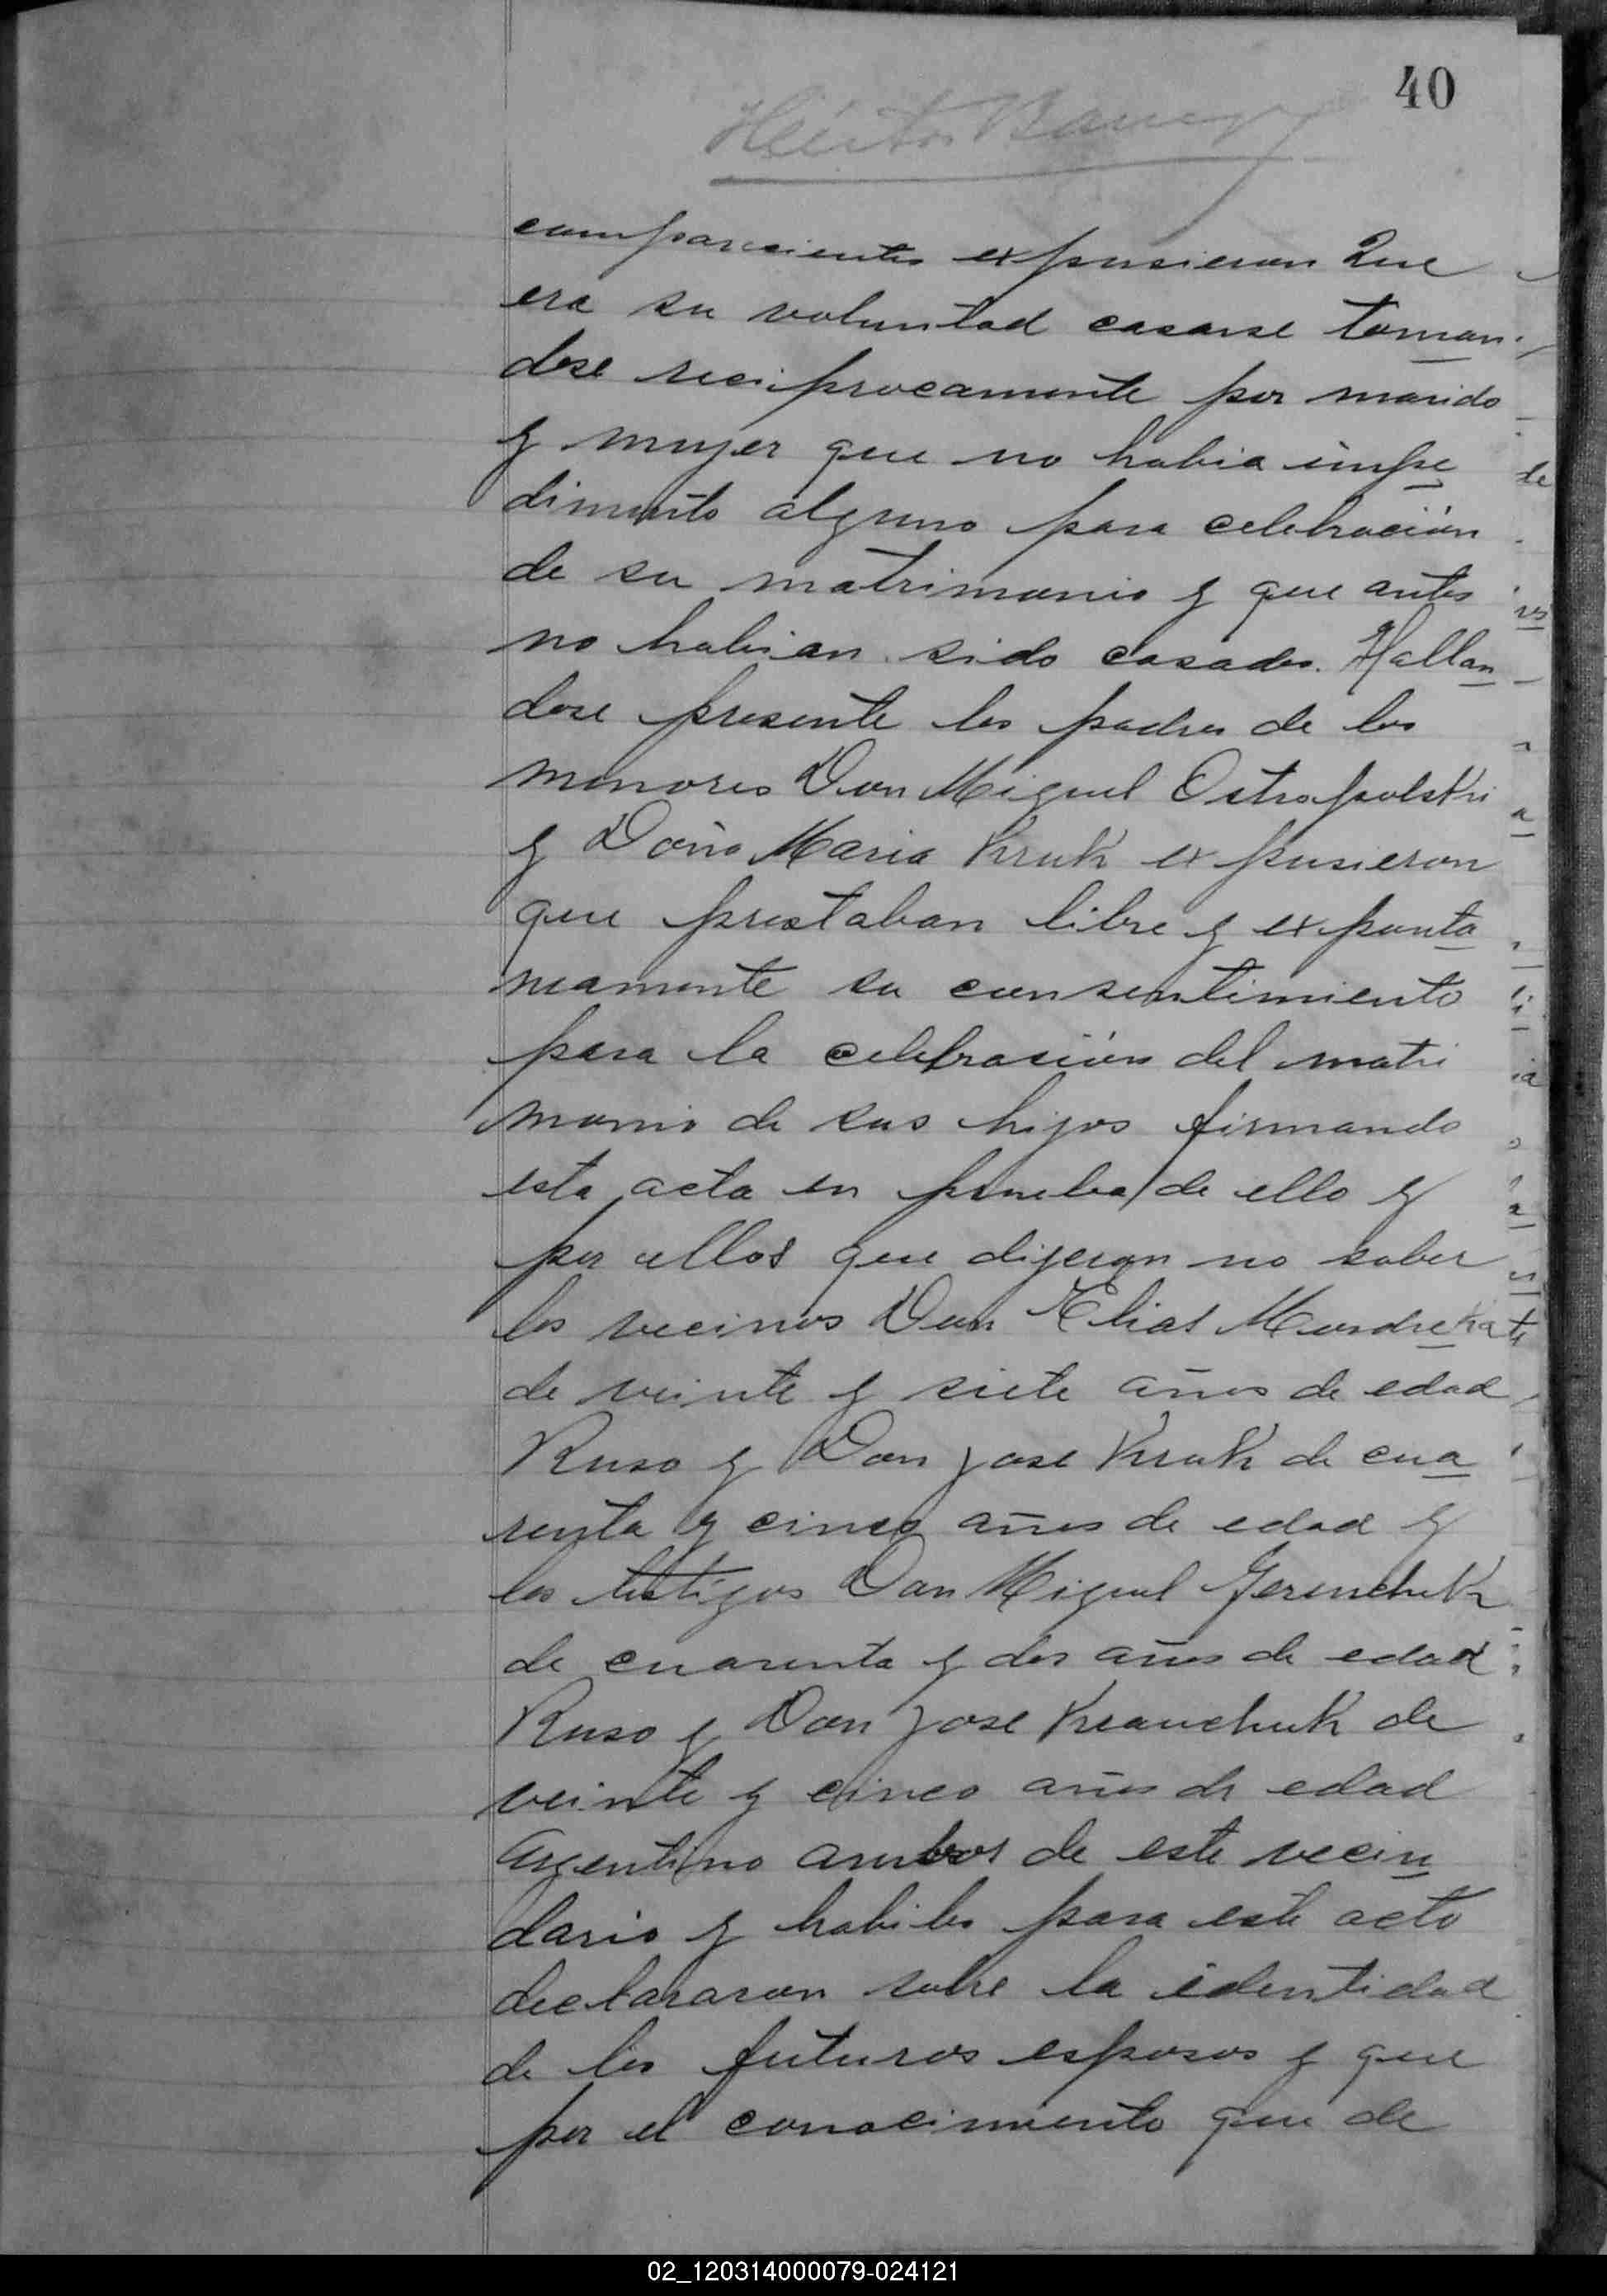 40
comparecientes expusieron Que
era su voluntad casarse toman
dose reciprocamente por marido
y mujer que no habia impe
dimento alguno para celebración
de su matrimonio y que antes
no habian sido casados. Hallan
dose presente los padres de los
menores Don Miguel Ostropolski
y Doña Maria Kruk expusieron
que prestaban libre y exponta
neamente su consentimiento
para la celebración del matri
monio de sus hijos firmando
esta acta en prueba de ello y
por ellos que dijeron no saber
los vecinos Don Elias
de veinte y siete años de edad
Ruso y Don Jose Kruk de cua
renta y cinco años de edad y
los testigos Don Miguel Gerenchuk
de cuarenta y dos años de edad
Ruso y Don Jose Krauchuk de
veinte y cinco años de edad
Argentino ambos de este vecin
dario y habiles para este acto
declararon sobre la identidad
de los futuros esposos y que
por el conocimiento que de
02_120314000079-024121